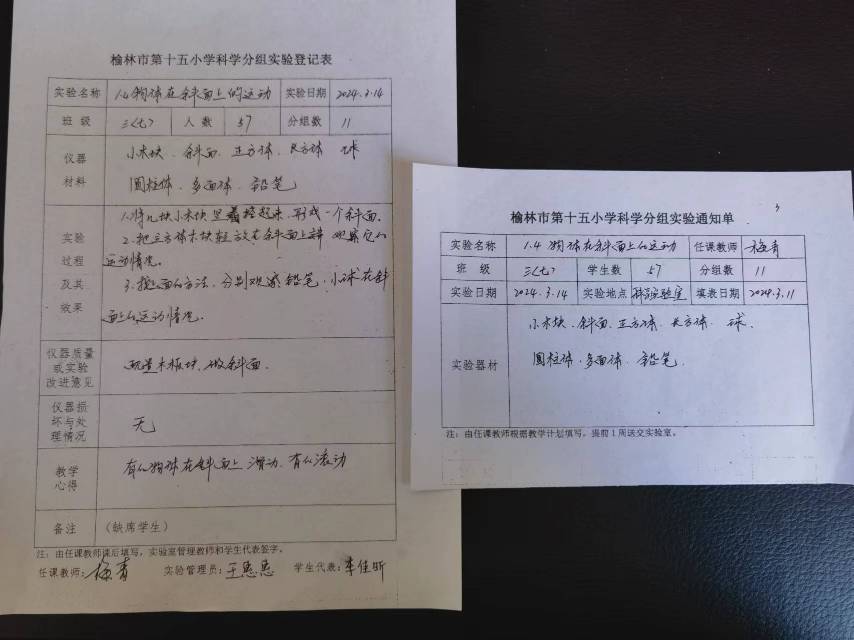 榆林市第十五小学科学分组实验登记表
实验名称 1.4物体在斜面上的运动 实验日期 2024.3.14
班 级 三(七) 人 数 57 分组数 11
仪器 材料 小木块、斜面、正方体、长方体 球
圆柱体、多面体、铅笔
实验 过程 及其 效果 1.将几块小木块垒起来,形成一个斜面。
2.把立方体木块轻放在斜面上 观察它的
运动情况。
3.按上面的方法,分别观察铅笔、小球在斜
面上的运动情况。
仪器质量 或实验 改进意见 配置木板块,做斜面。
仪器损 坏与处 理情况 无
教学 心得 有的物体在斜面上滑动、有的滚动
备注 (缺席学生)
注:由任课教师课后填写,实验室管理教师和学生代表签字。
任课教师: 梅青 实验管理员: 王恩恩 学生代表: 李佳昕
榆林市第十五小学科学分组实验通知单
实验名称 1.4 物体在斜面上的运动 任课教师 梅青
班 级 三(七) 学生数 57 分组数 11
实验日期 2024.3.14 实验地点 科学实验室 填表日期 2024.3.11
实验器材 小木块、斜面、正方体、长方体、球、
圆柱体、多面体、铅笔
注:由任课教师根据教学计划填写,提前1周送交实验室。